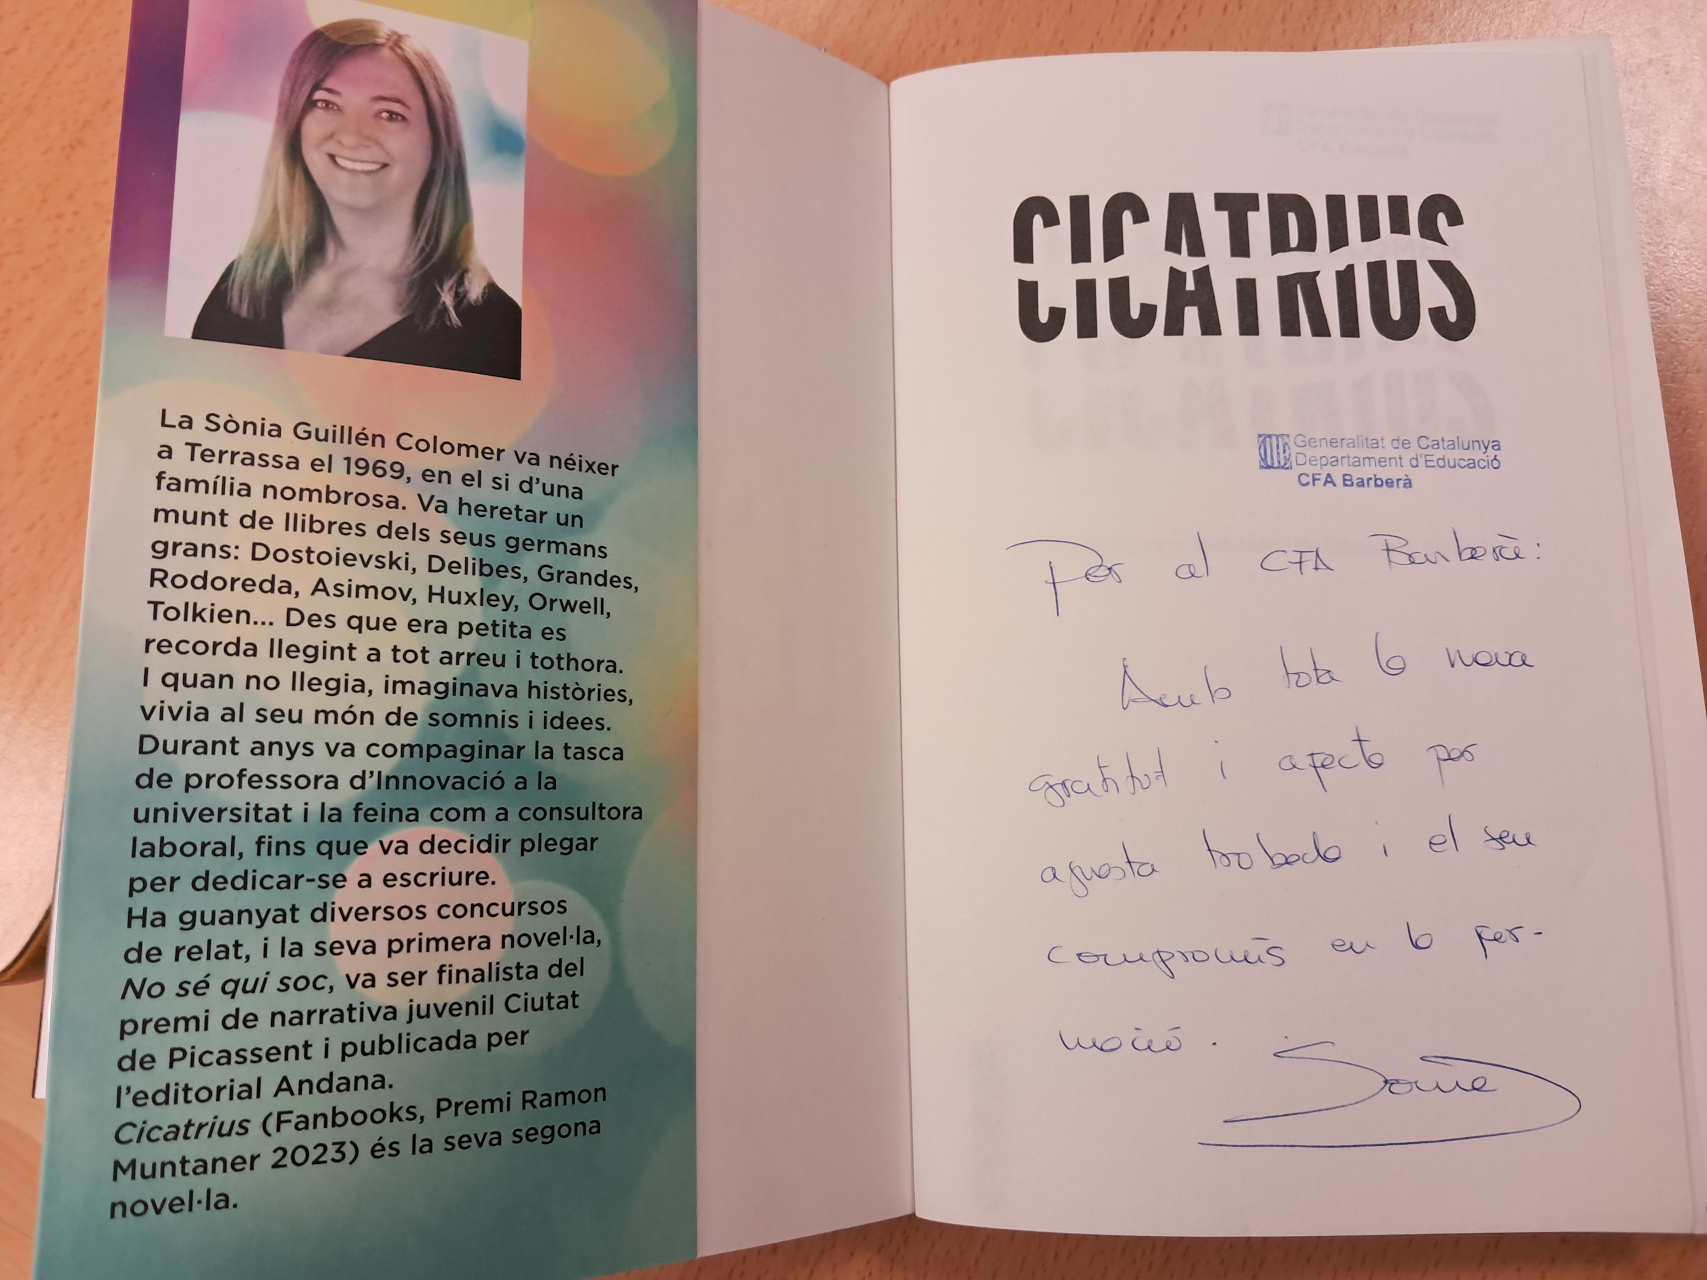 La Sònia Guillén Colomer va néixer
a Terrassa el 1969, en el si d'una
família nombrosa. Va heretar un
munt de llibres dels seus germans
grans: Dostoievski, Delibes, Grandes,
Rodoreda, Asimov, Huxley, Orwell,
Tolkien... Des que era petita es
recorda llegint a tot arreu i tothora.
I quan no llegia, imaginava històries,
vivia al seu món de somnis i idees.
Durant anys va compaginar la tasca
de professora d'Innovació a la
universitat i la feina com a consultora
laboral, fins que va decidir plegar
per dedicar-se a escriure.
Ha guanyat diversos concursos
de relat, i la seva primera novel·la,
No sé qui soc, va ser finalista del
premi de narrativa juvenil Ciutat
de Picassent i publicada per
l'editorial Andana.
Cicatrius (Fanbooks, Premi Ramon
Muntaner 2023) és la seva segona
novel·la.
CICATRIUS
Generalitat de Catalunya
Departament d'Educació
CFA Barberà
Per al CFA Barberà:
Amb tota la meva
gratitut i afecte per
aquesta trobada i el seu
compromís en la for-
mació.
Sònia